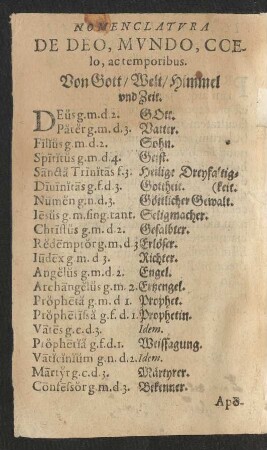 NOMENCLATVRA
DE DEO, MVNDO, COE-
lo, ac temporibus.
Von Gott / Welt / Himmel
vnd Zeit.
DEŭs g.m.d 2. GOtt.
Pătĕr g.m.d.3. Vatter.
Fīlĭŭs g.m.d.2. Sohn.
Spīrĭtŭs g.m.d.4. Geist.
Sānctă Trīnĭtās f.3. Heilige Dreyfaltig-
Dīvīnĭtās g.f.d.3. Gottheit. (keit.
Nūmĕn g.n.d.3. Göttlicher Gewalt.
Iēsŭs g.m.sing.tant. Seligmacher.
Christŭs g.m.d.2. Gesalbter.
Rĕdēmptŏr g.m.d.3 Erlöser.
Iūdĕx g.m d.3. Richter.
Angĕlŭs g.m.d.2. Engel.
Archāngĕlŭs g.m.2. Ertzengel.
Prŏphētă g.m.d 1. Prophet.
Prŏphētīssă g.f.d.1. Prophetin.
Vātēs g.c.d.3. Idem.
Prŏphētīă g.f.d.1. Weissagung.
Vātĭcĭnĭŭm g.n.d.2. Idem.
Mārtȳr g.c.d.3. Märtyrer.
Cōnfēssŏr g.m.d.3. Bekenner.
Apŏ-